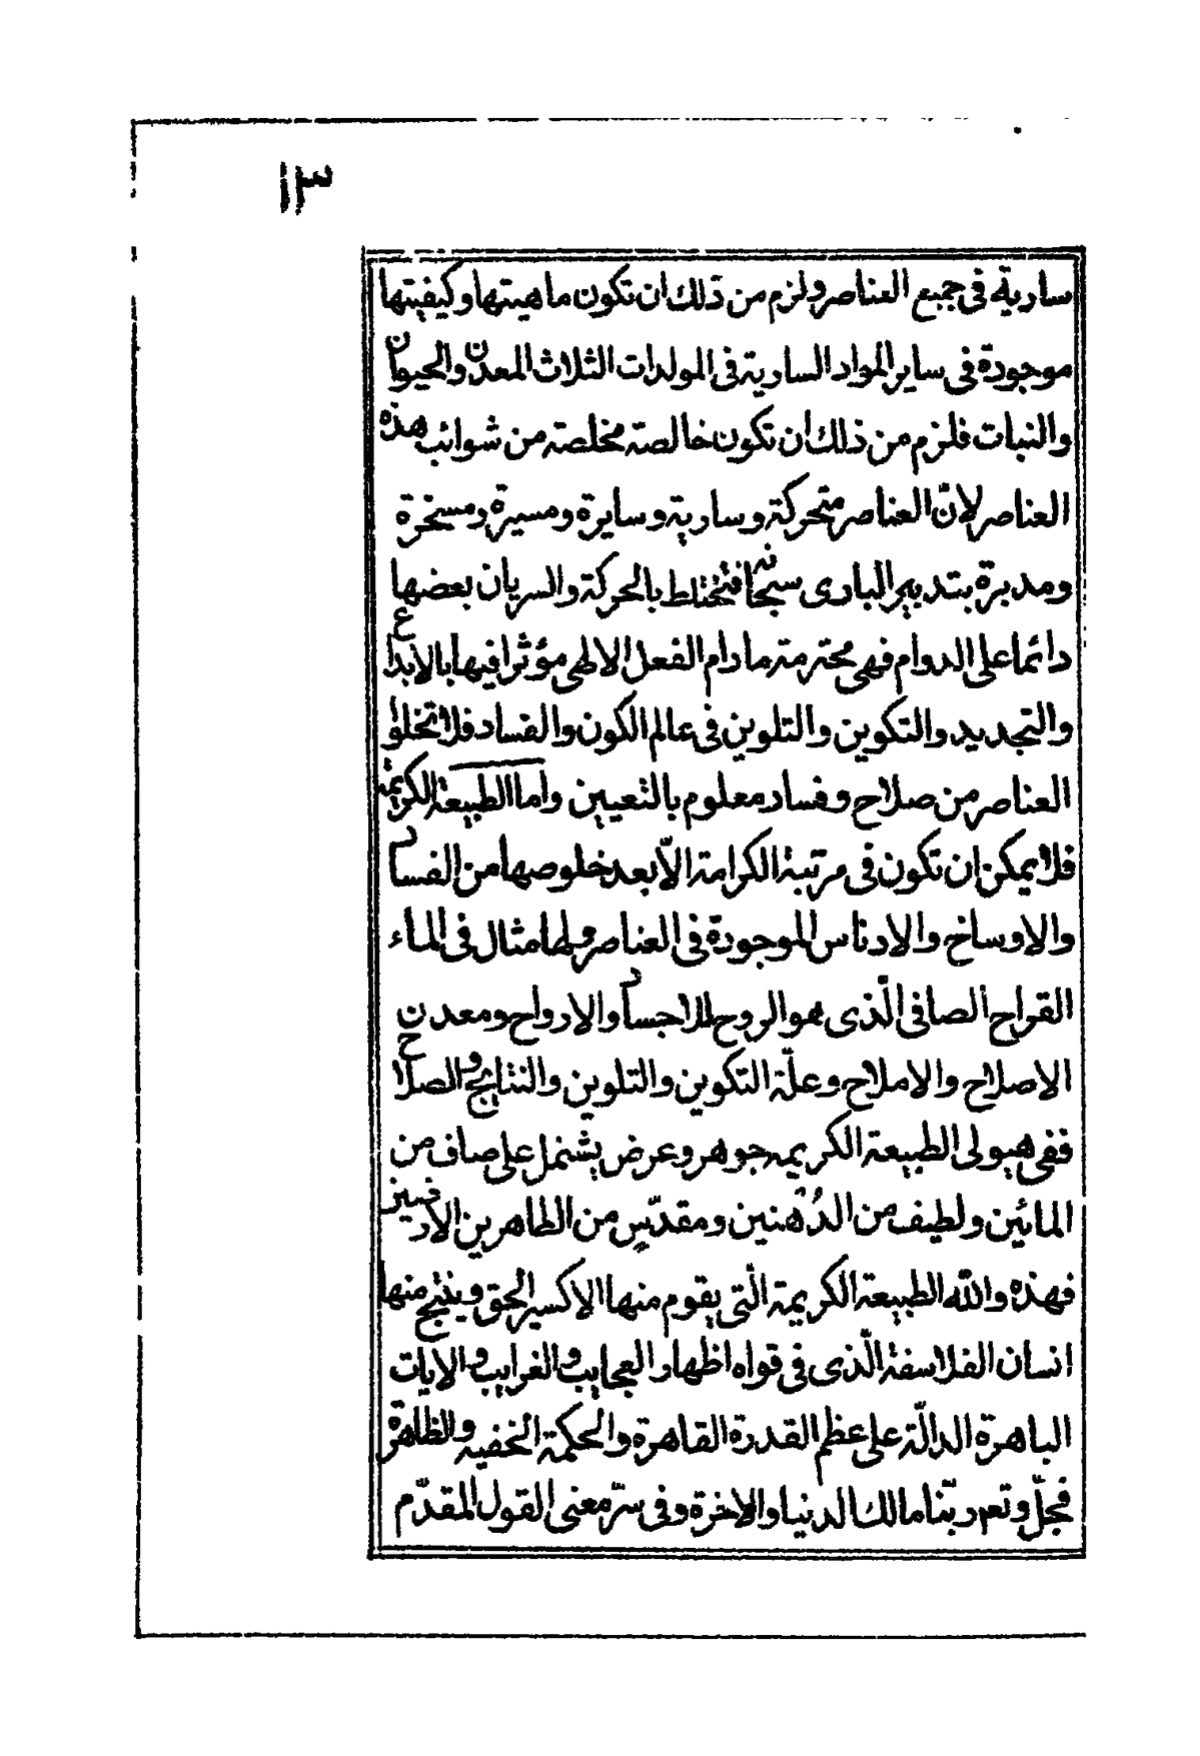 ١٣
سارية فى جميع العناصر ولزم من ذلك ان تكون ماهيتها وكيفيتها
موجودة فى ساير المواد السارية فى المولدات الثلاث المعدن والحيوان
والنبات فلزم من ذلك ان تكون خالصة مخلصة من شوائب هذه
العناصر لانّ العناصر متحركة وسارية وسايرة ومسيرة ومسخرة
ومدبرة بتدبير البارى سبحانه فتختلط بالحركة والسريان بعضها
دائما على الدوام فهى محترمة ما دام الفعل الالهى مؤثرا فيها بالابداع
والتجديد والتكوين والتلوين فى عالم الكون والفساد فلا تخلوا
العناصر من صلاح وفساد معلوم بالتعيين واما الطبيعة الكريمة
فلا يمكن ان تكون فى مرتبة الكرامة الّا بعد خلوصها من الفساد
والاوساخ والادناس الموجودة فى العناصر ولها مثال فى الماء
القراح الصافى الّذى هو الروح للاجساد والارواح ومعدن
الاصلاح والاملاح وعلّة التكوين والتلوين والنتايج والصلاح
ففى هيولى الطبيعة الكريمه جوهر وعرض يشتمل على صاف من
المائين ولطيف من الدُهنين ومقدّس من الطاهرين الارضين
فهذه والله الطبيعة الكريمة الّتى يقوم منها الاكسير الحق وينتج منها
انسان الفلاسفة الّذى فى قواه اظهار العجايب والغرايب والايات
الباهرة الدالّة على عظم القدرة القاهرة والحكمة الخفيه والظاهرة
فجلّ وتع ربّنا مالك الدنيا والاخرة وفى سرّ معنى القول المقدّم